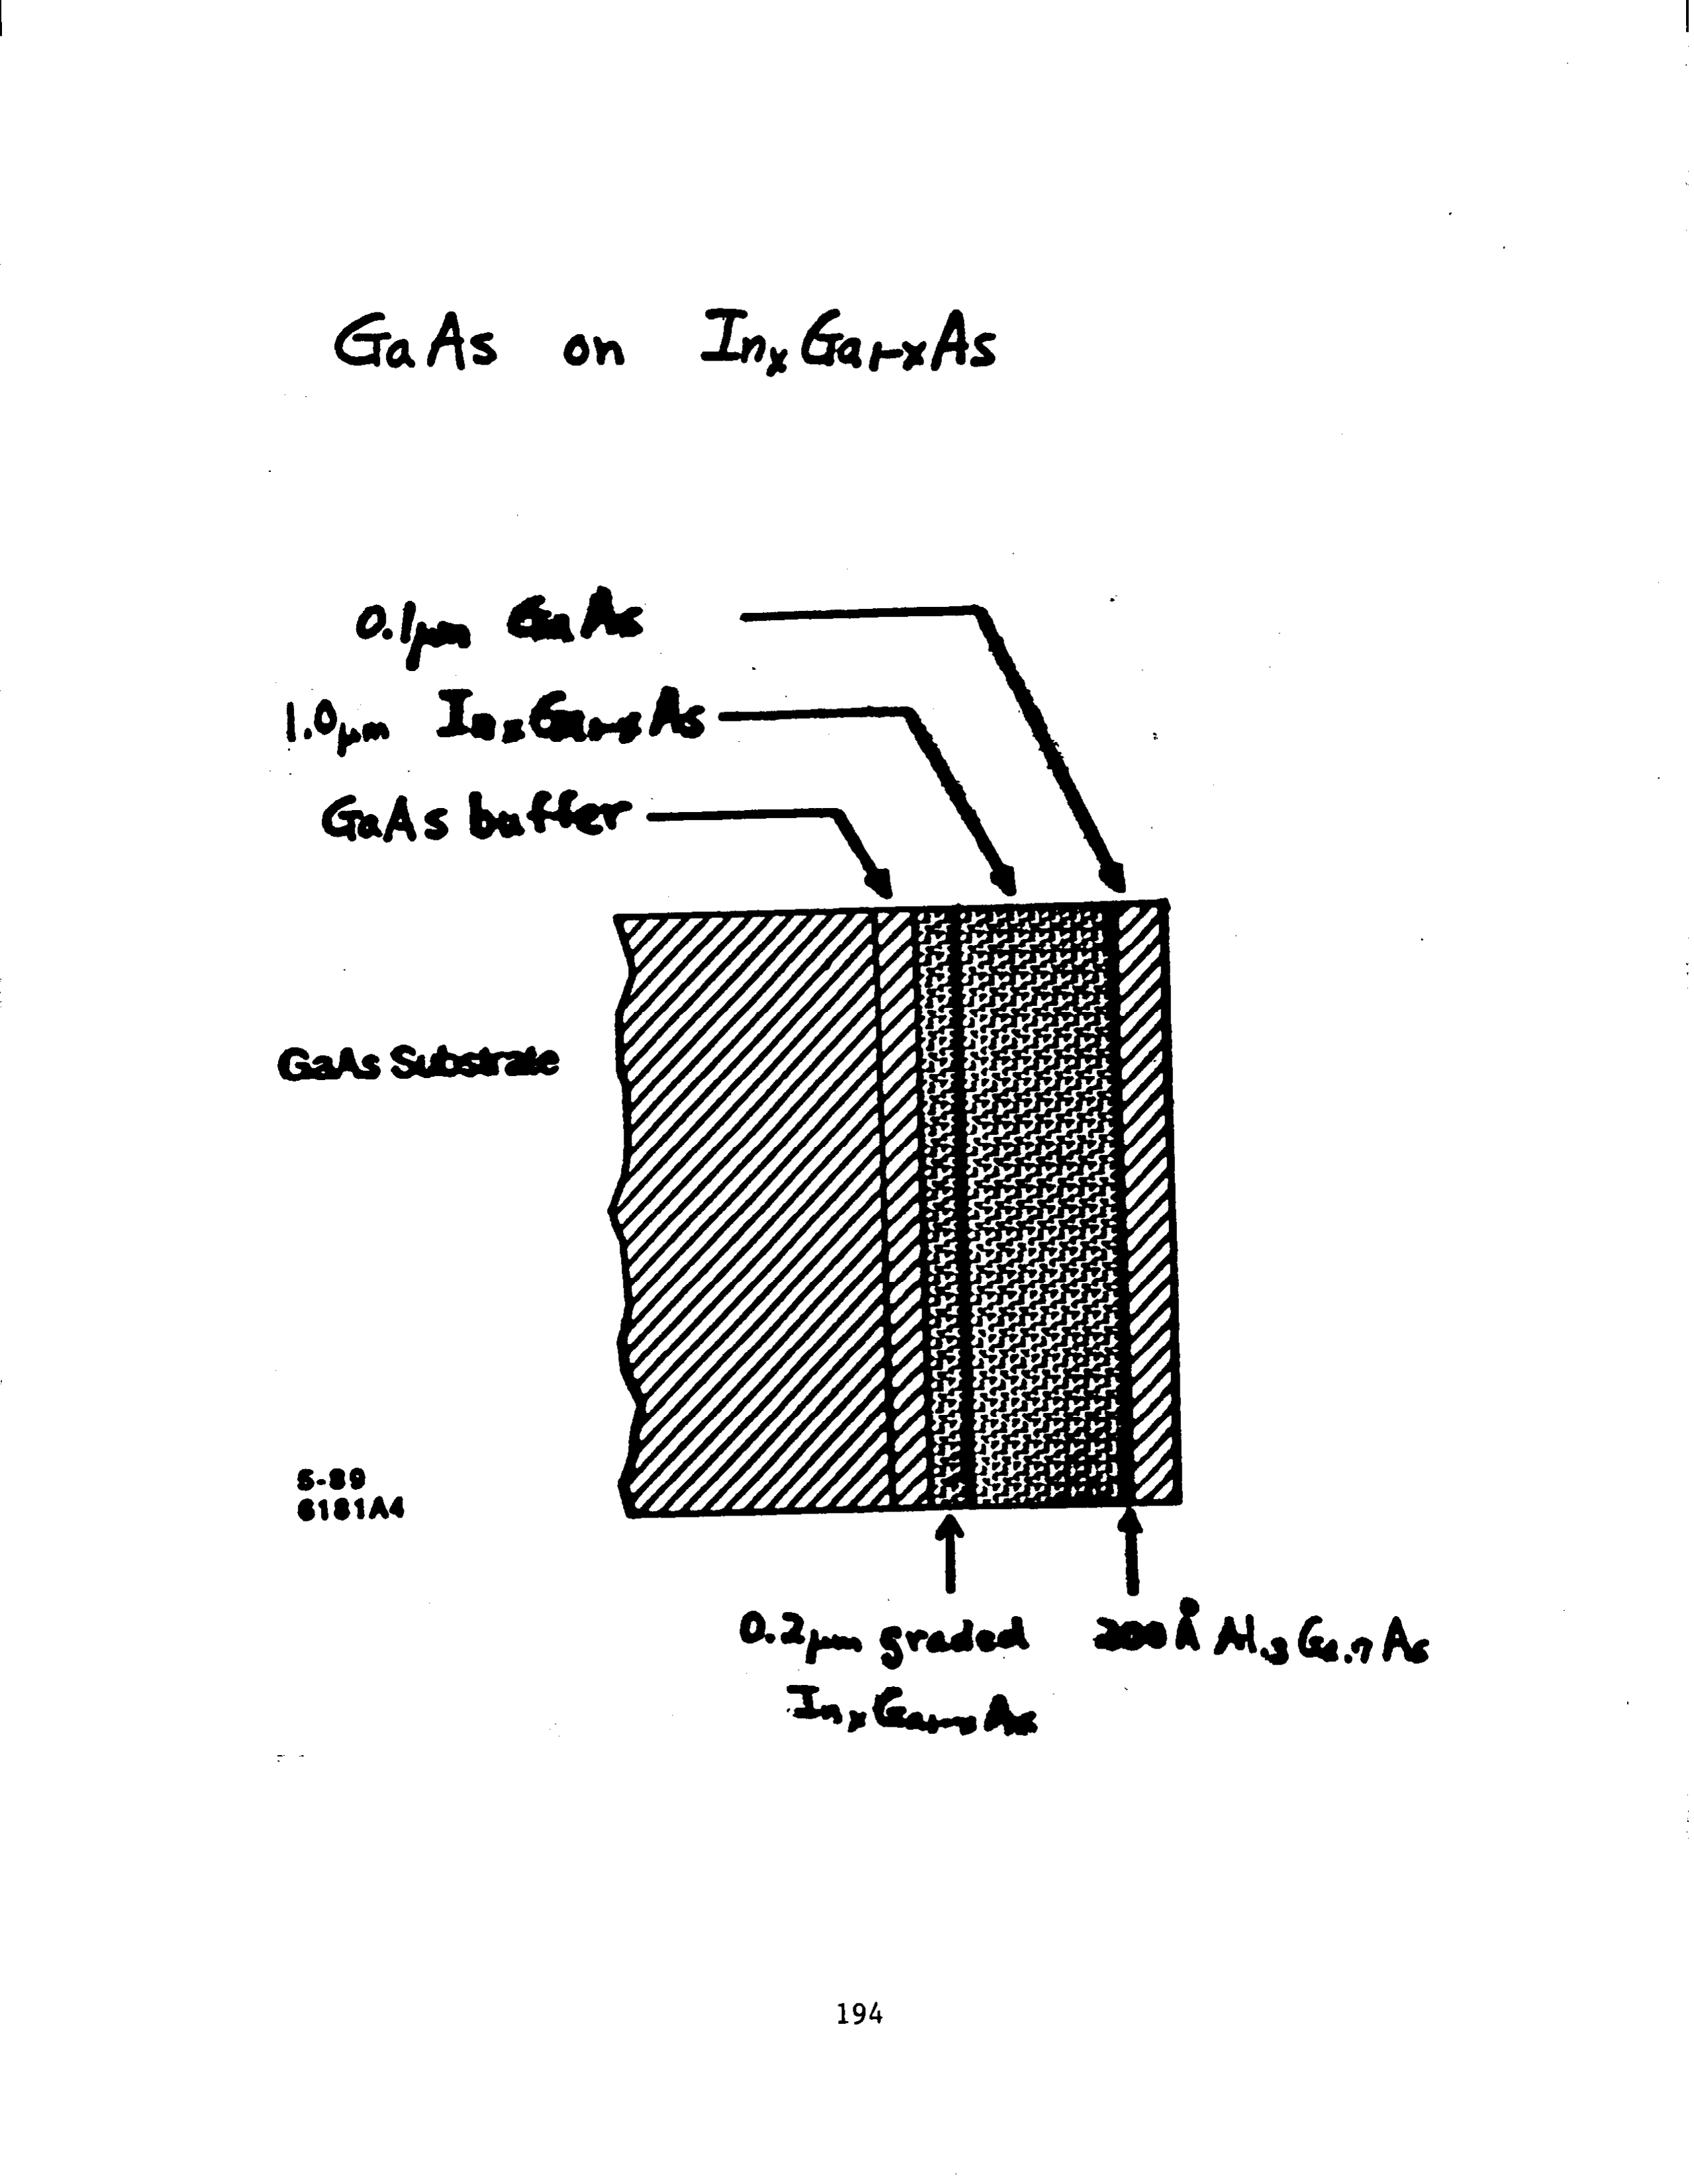 GaAs on InxGa1-xAs
0.1μm GaAs
1.0μm InxGa1-xAs
GaAs buffer
GaAs Substrate
5-89
6181A4
0.2μm graded 200Å Al.3Ga.7As
InxGa1-xAs
194